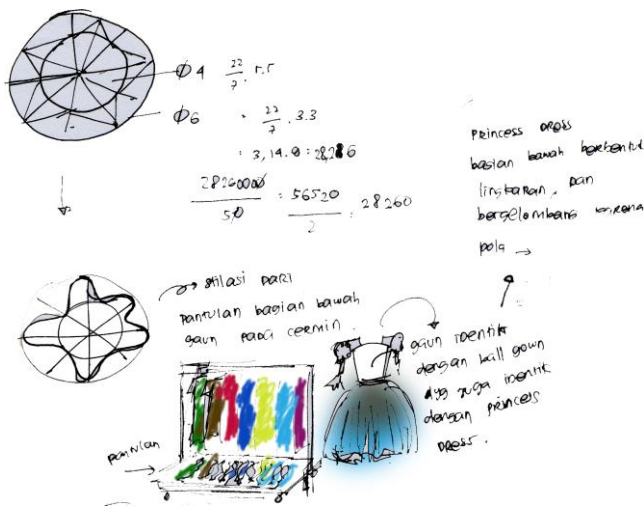 Ø4 22/7 . r.r
Ø6 = 22/7 . 3.3
= 3,14.9 = 28,26
28260000/50 = 56520/2 = 28260
PRINCESS DRESS
bagian bawah berbentuk
lingkaran, dan
bergelombang karena
pola →
stilasi DARI
pantulan bagian bawah
gaun PADA cermin.
gaun identik
dengan ball gown
yg juga identik
dengan princess
DRESS.
pantulan